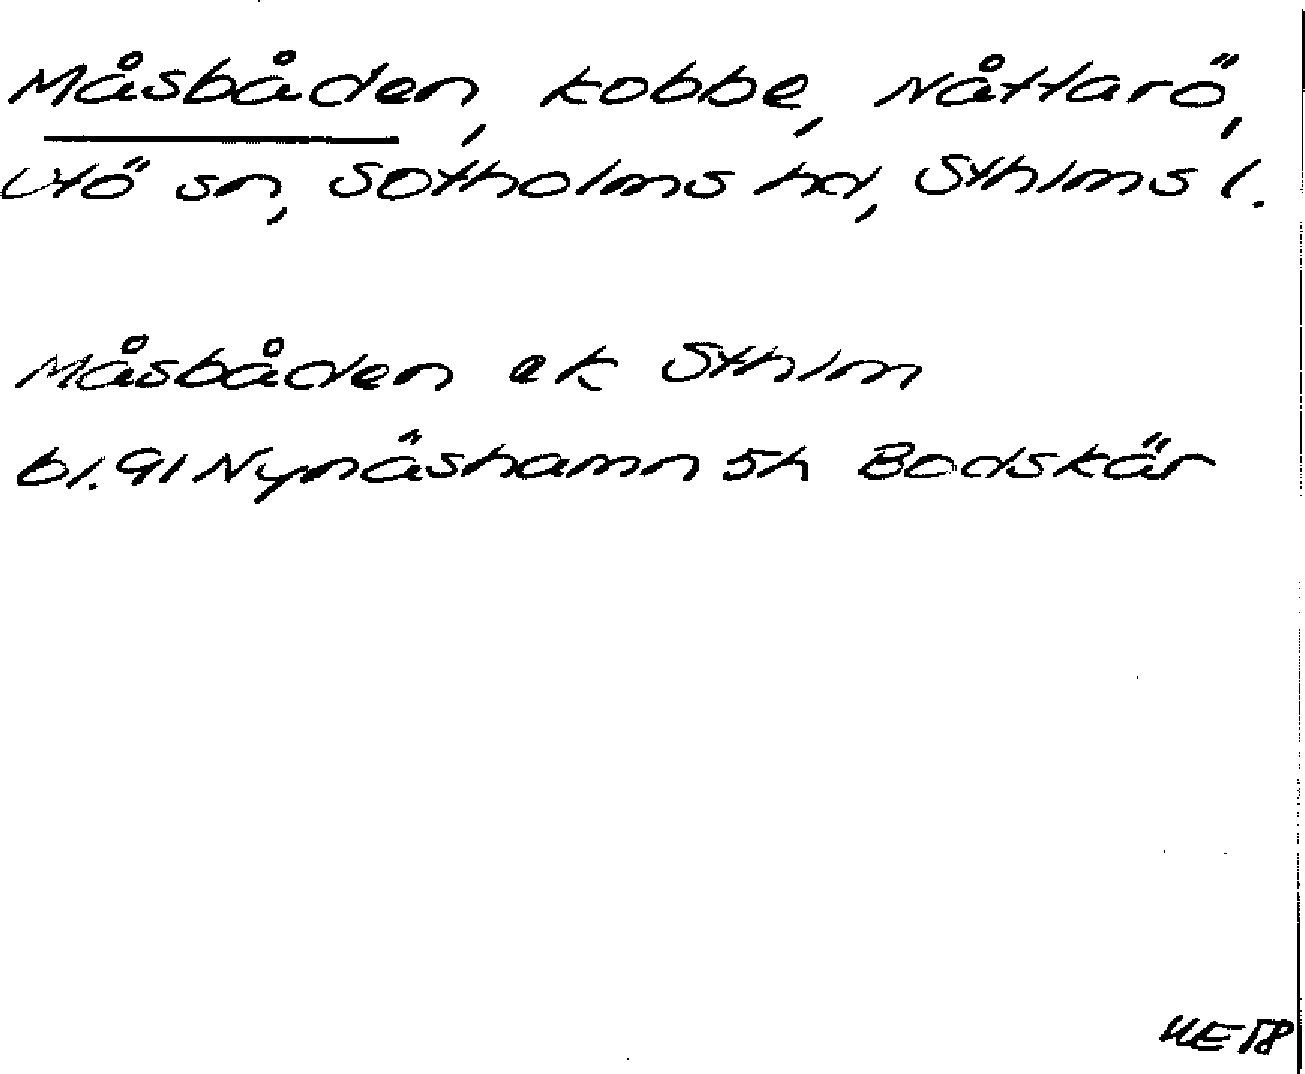 Måsbåden, kobbe, Nåttarö,
Utö sn, Sotholms hd, Sthlms l.
Måsbåden ek Sthlm
bl. 91 Nynäshamn 5h Bodskär